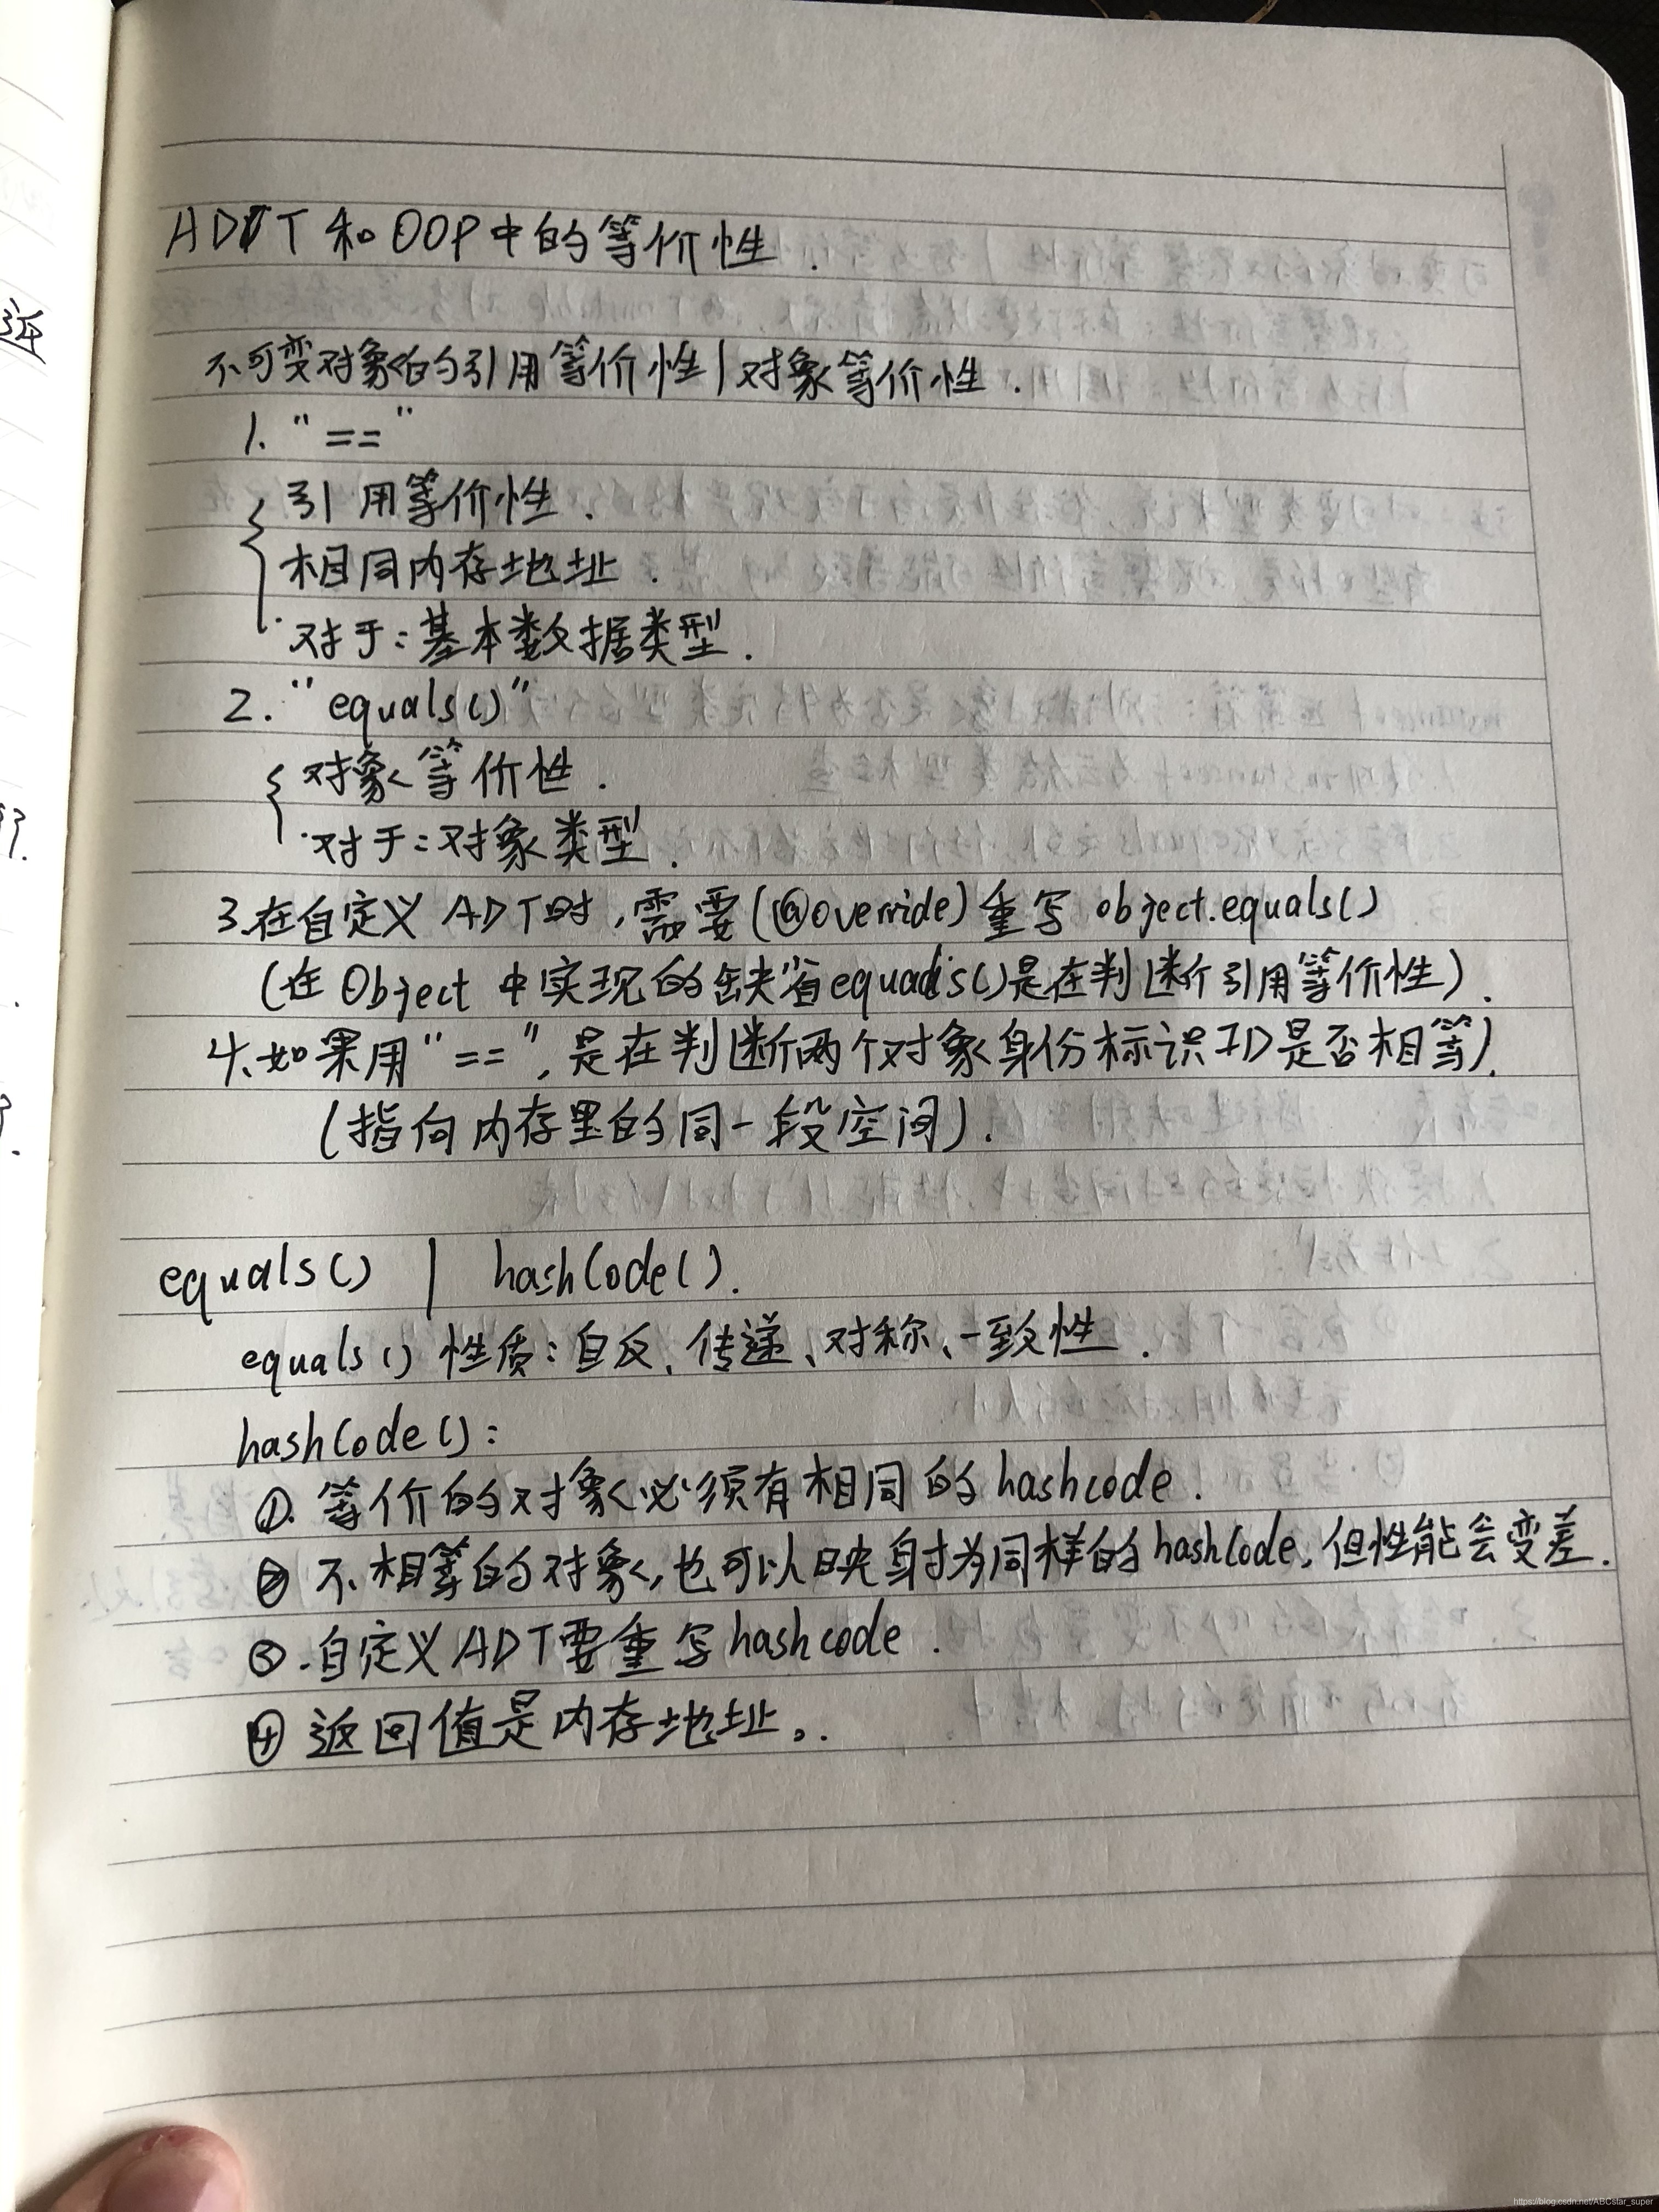 ADT 和 OOP 中的等价性.
不可变对象的引用等价性 | 对象等价性.
1. "=="
引用等价性.
相同内存地址.
对于:基本数据类型.
2. "equals()"
对象等价性.
对于:对象类型.
3.在自定义 ADT时,需要(@override)重写 object.equals()
(在 Object 中实现的缺省equals()是在判断引用等价性).
4.如果用"==",是在判断两个对象身份标识ID是否相等).
(指向内存里的同一段空间).
equals() | hashCode().
equals() 性质:自反、传递、对称、一致性.
hashCode():
①. 等价的对象必须有相同的 hashcode.
② 不相等的对象,也可以映射为同样的 hashCode,但性能会变差.
③.自定义 ADT要重写 hashcode.
④ 返回值是内存地址。.
返
https://blog.csdn.net/ABCstar_super